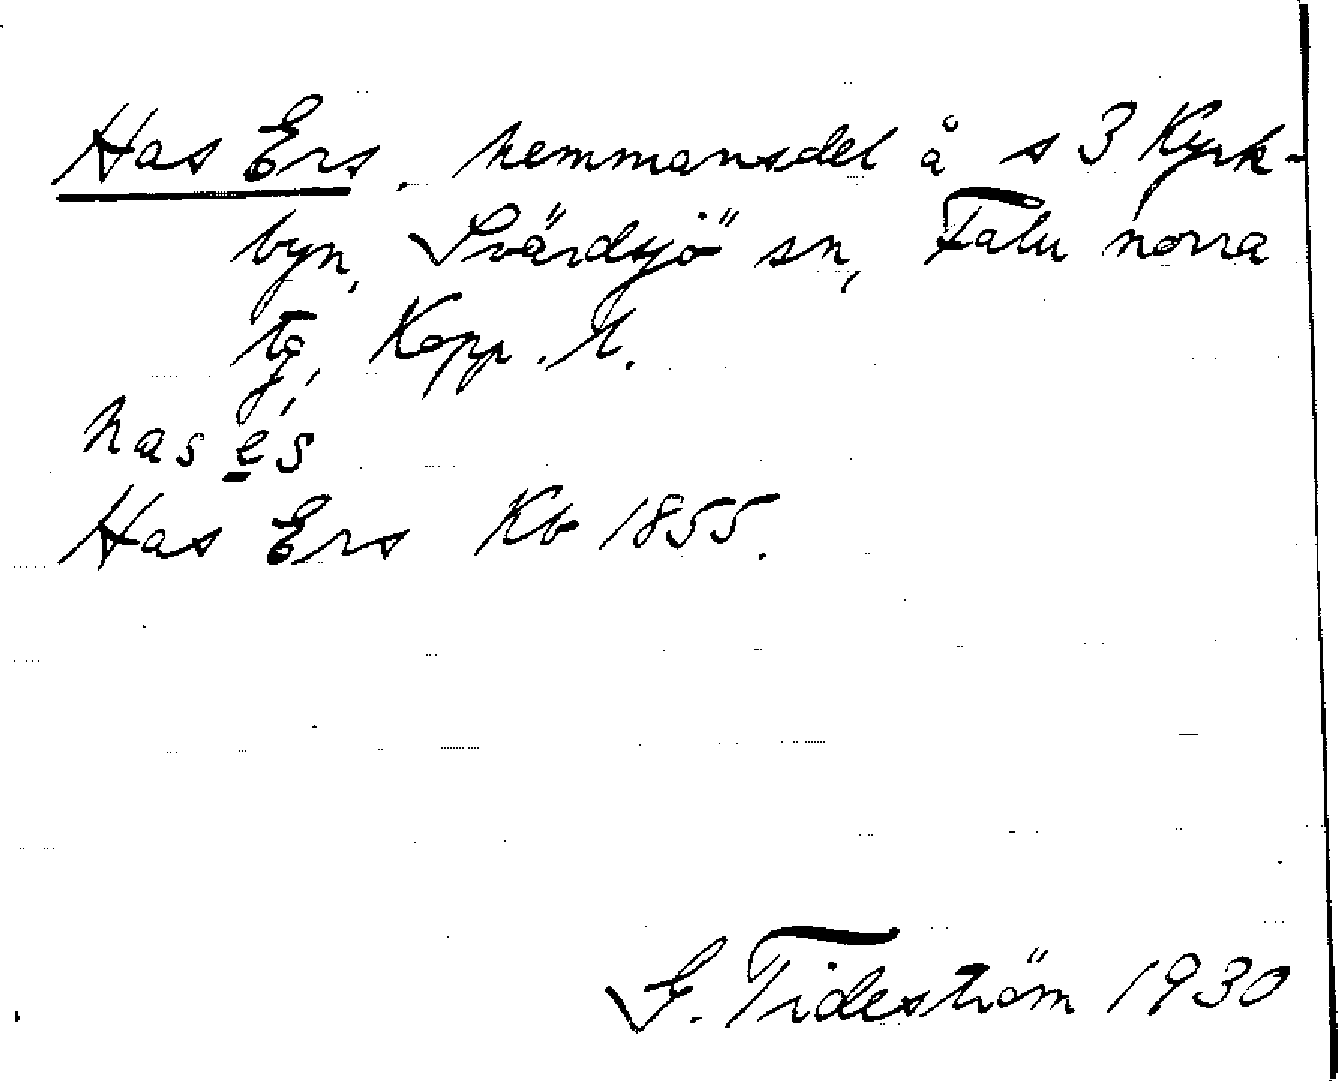 Has Ers. hemmansdel å s 3 Kyrk-
byn, Svärdsjö sn, Falu norra
tg, Kopp. l.
has es
Has Ers Kb 1855.
G. Tideström 1930